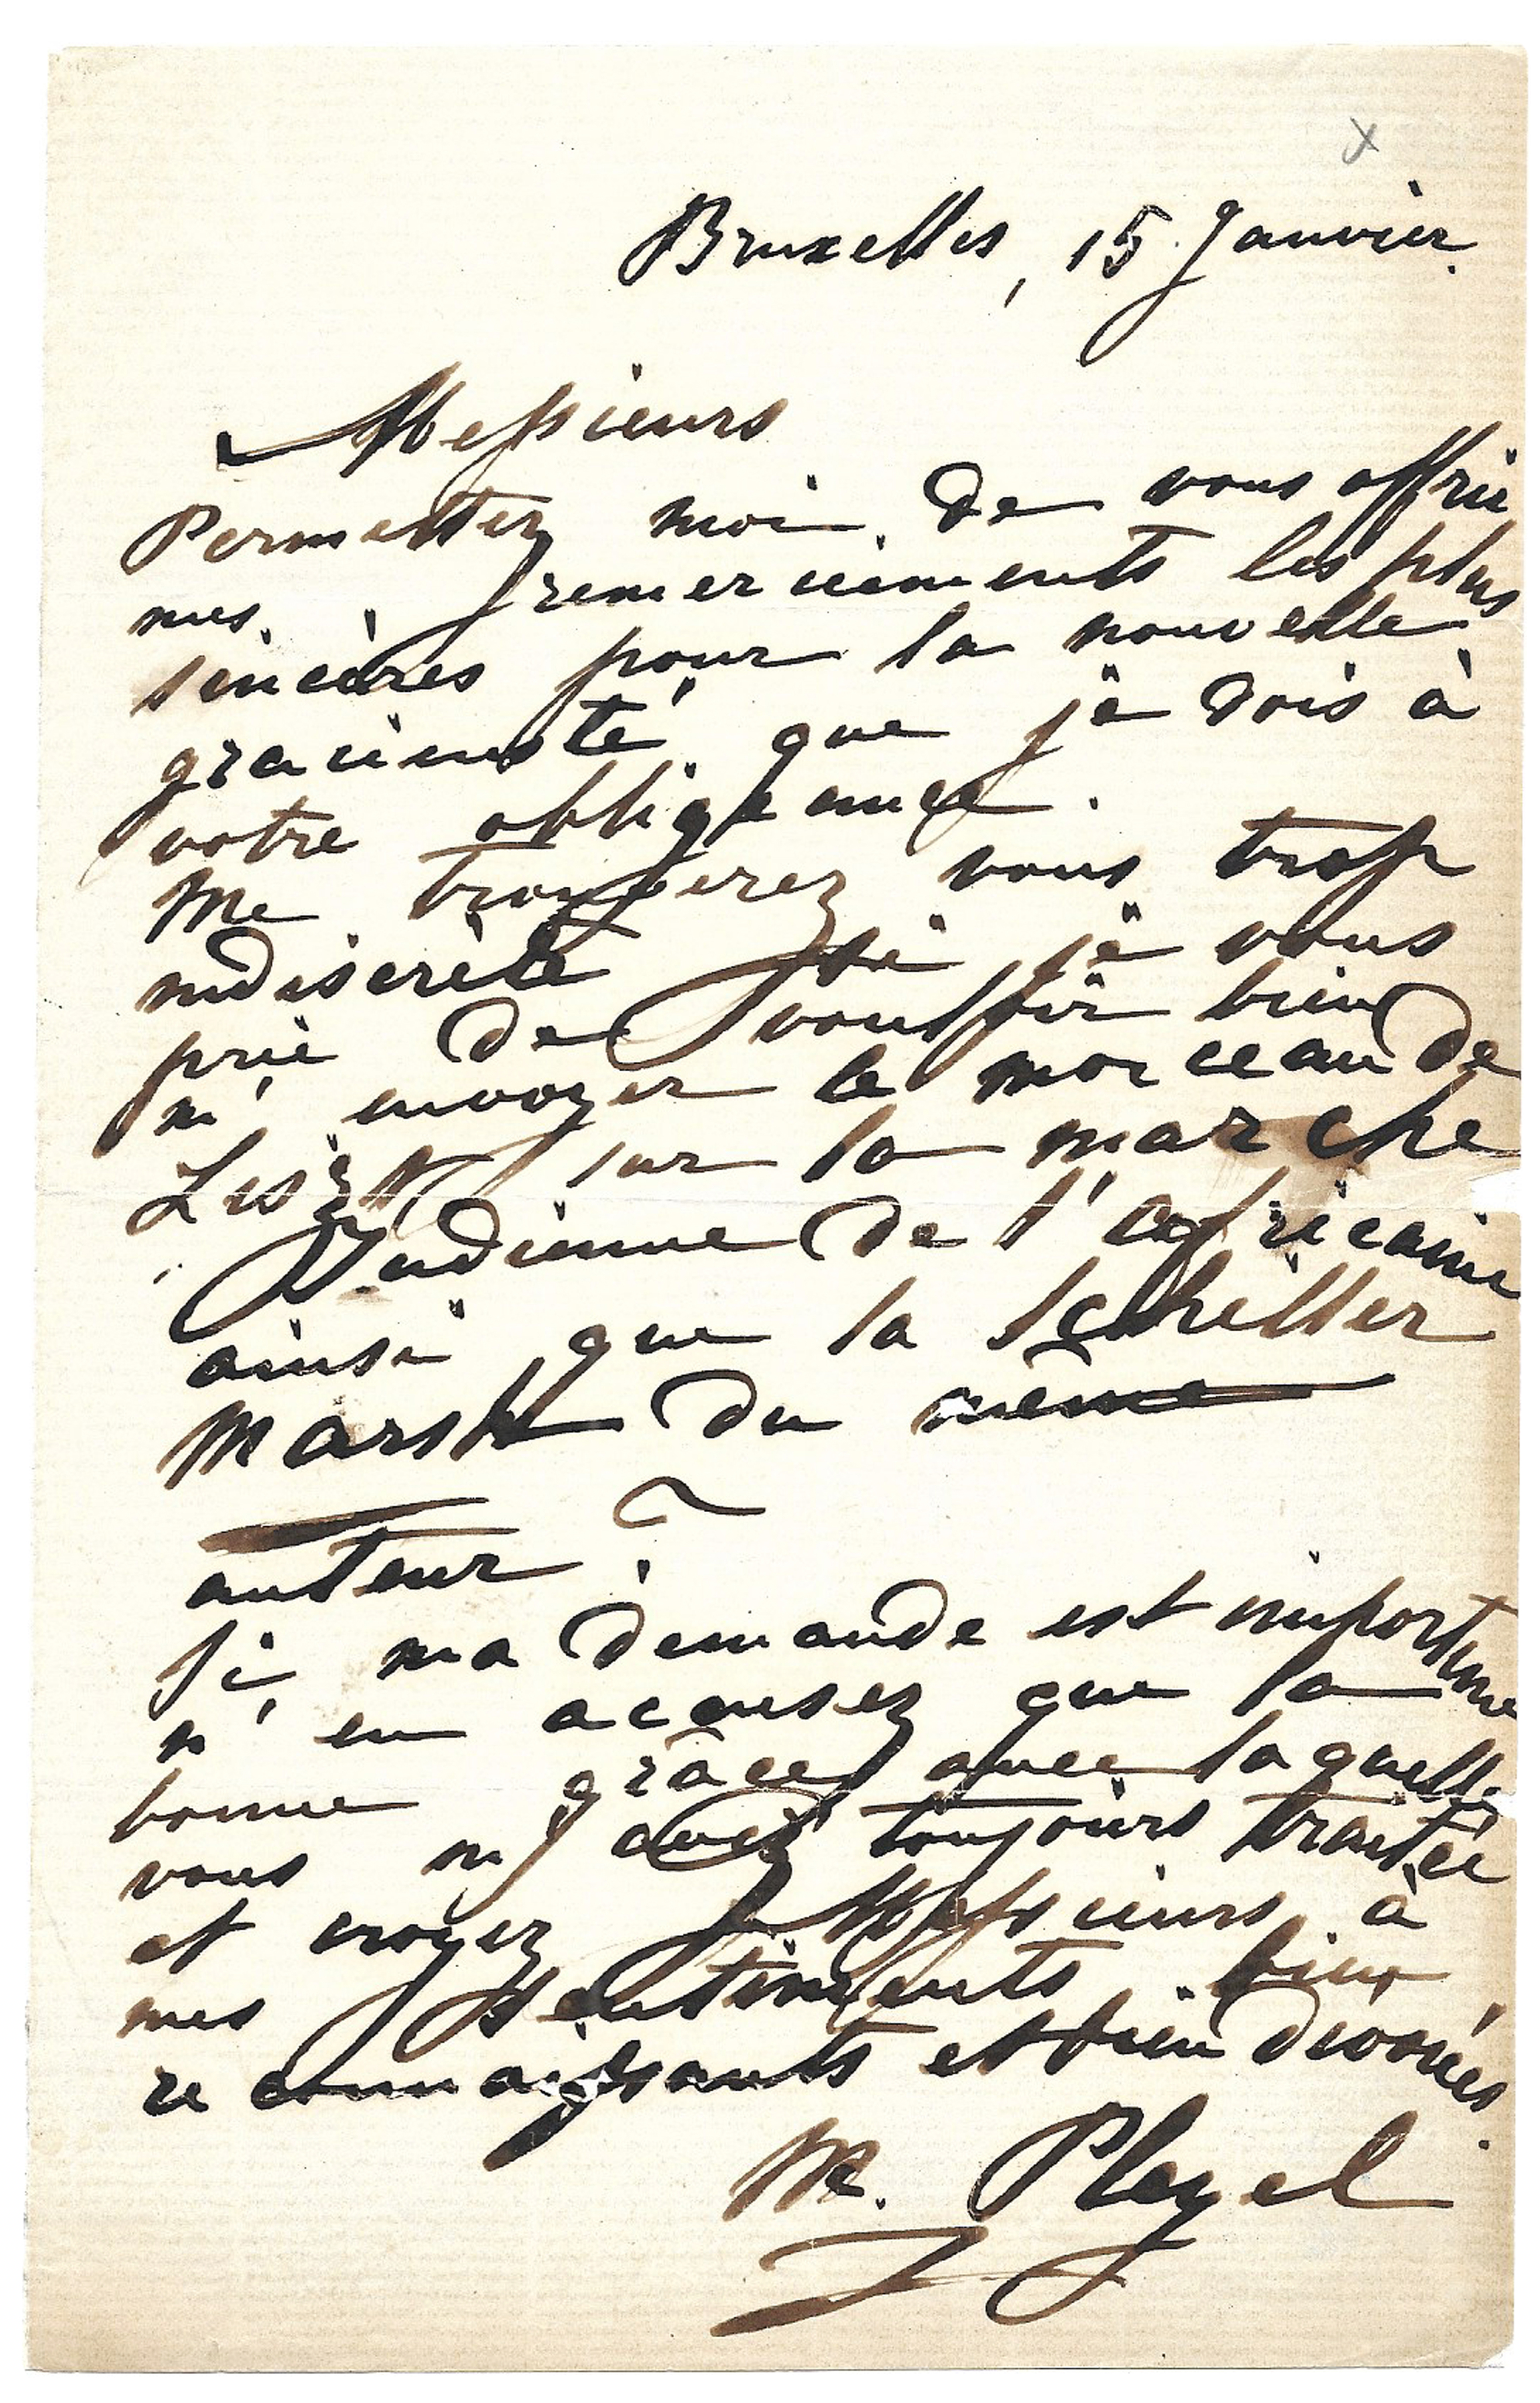 Bruxelles, 15 Janvier.
Messieurs
Permettez moi de vous offrir
mes remerciements les plus
sincères pour la nouvelle
gracieusté que je dois à
votre obligeance.
Me trouverez vous trop
indiscrète si je vous
prie de vouloir bien
m'envoyer le morceau de
Liszt sur la marche
Indienne de l'africaine
ainsi que la Schiller
Marsch du même
auteur ?
Si ma demande est importune
n'en accusez que la
bonne grâce avec laquelle
vous m'avez toujours traitée
et croyez Messieurs à
mes sentiments bien
reconnaissants et bien dévoués.
M. Pleyel